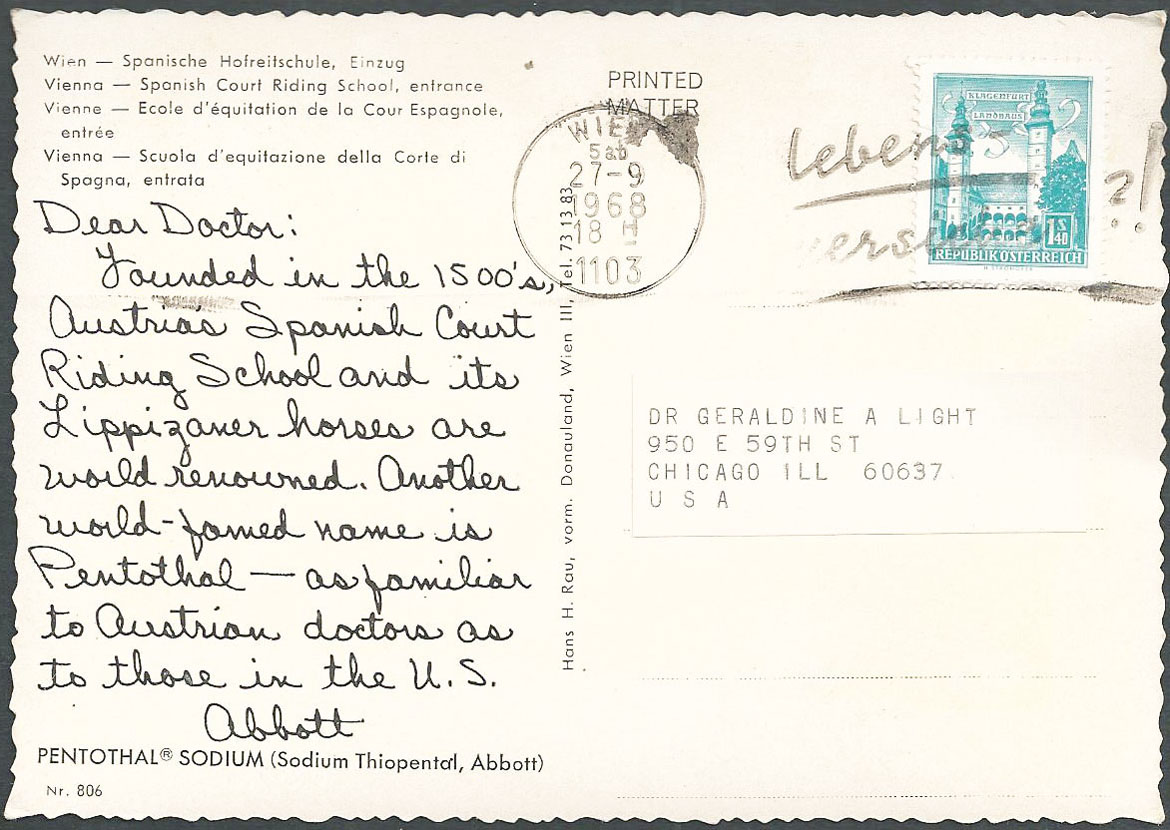 Wien — Spanische Hofreitschule, Einzug
Vienna — Spanish Court Riding School, entrance
Vienne — Ecole d'équitation de la Cour Espagnole,
entrée
Vienna — Scuola d'equitazione della Corte di
Spagna, entrata
Dear Doctor:
Founded in the 1500's,
Austria's Spanish Court
Riding School and its
Lippizaner horses are
world renowned. Another
world-famed name is
Pentothal — as familiar
to Austrian doctors as
to those in the U.S.
Abbott
PENTOTHAL® SODIUM (Sodium Thiopental, Abbott)
Nr. 806
Hans H. Rau, vorm. Donauland, Wien III, Tel. 73 13 83
PRINTED
MATTER
WIEN
27-9
1968
18
1103
lebens
?!
KLAGENFURT
LANDHAUS
1S
40
REPUBLIK ÖSTERREICH
DR GERALDINE A LIGHT
950 E 59TH ST
CHICAGO ILL 60637
U S A